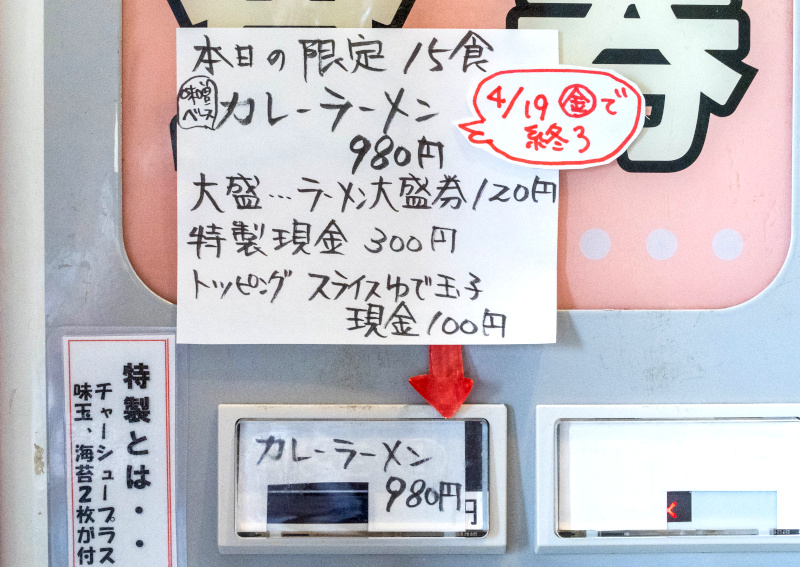 本日の限定 15食
味噌
ベース
カレーラーメン
980円
4/19㊎で
終了
大盛…ラーメン大盛券120円
特製現金 300円
トッピング スライスゆで玉子
現金100円
カレーラーメン
980円
円
特製とは・・
チャーシュープラス
味玉、海苔2枚が付
券